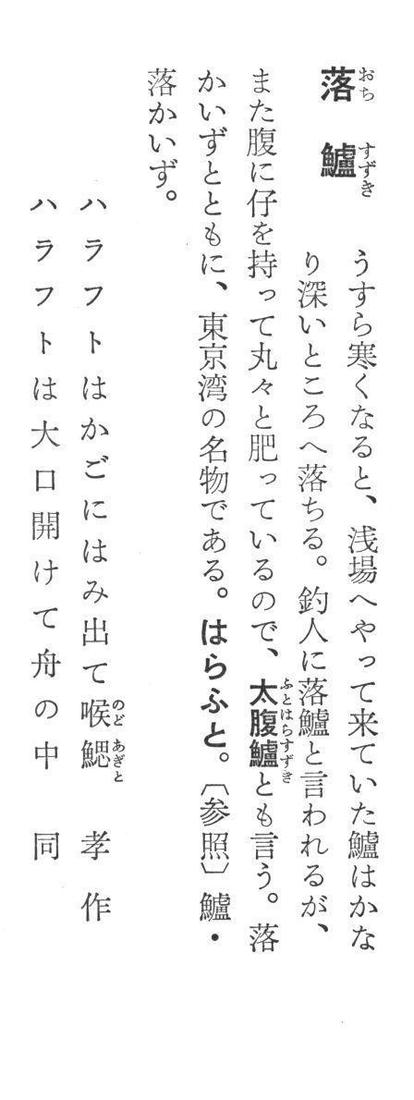 落鱸
おち すずき
うすら寒くなると、浅場へやって来ていた鱸はかな
り深いところへ落ちる。釣人に落鱸と言われるが、
また腹に仔を持って丸々と肥っているので、太腹鱸とも言う。落
ふとはらすずき
かいずとともに、東京湾の名物である。はらふと。〔参照〕鱸・
落かいず。
ハラフトはかごにはみ出て喉鰓 孝作
のど あぎと
ハラフトは大口開けて舟の中 同